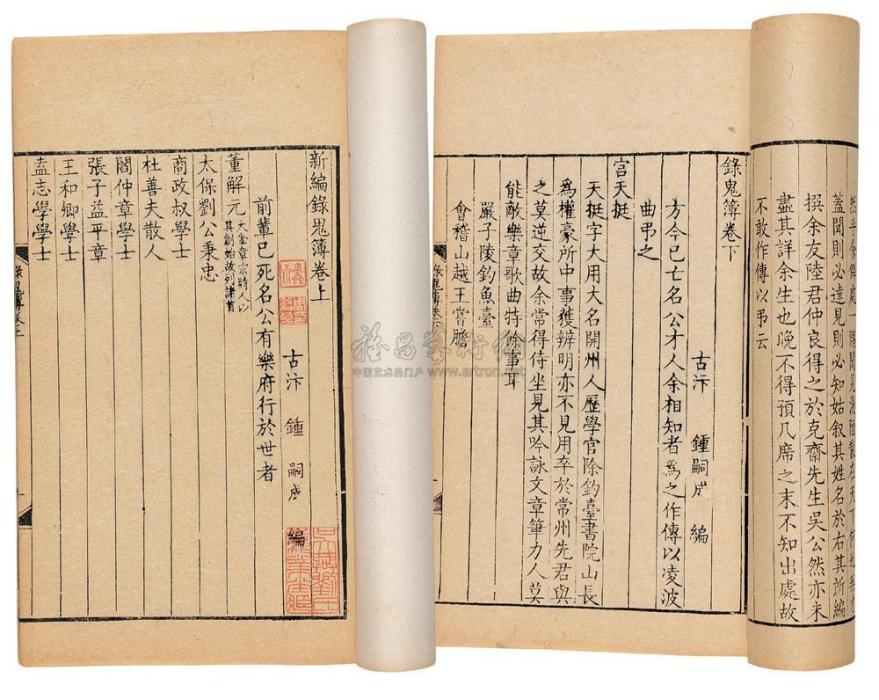 蓋聞則必達見則必知姑叙其姓名於右其所編
撰余友陸君仲良得之於克齋先生吳公然亦未
盡其詳余生也晚不得預几席之末不知出處故
不敢作傳以弔云
錄鬼簿卷下
古汴 鍾嗣成 編
方今已亡名公才人余相知者爲之作傳以凌波
曲弔之
宮天挺
天挺字大用大名開州人歷學官除釣臺書院山長
爲權豪所中事獲辨明亦不見用卒於常州先君與
之莫逆交故余常得侍坐見其吟詠文章筆力人莫
能敵樂章歌曲特餘事耳
嚴子陵釣魚臺
會稽山越王嘗膽
新編錄鬼簿卷上
古汴 鍾嗣成 編
前輩已死名公有樂府行於世者
董解元 大金章宗時人以
其創始故列諸首
太保劉公秉忠
商政叔學士
杜善夫散人
閻仲章學士
張子益平章
王和卿學士
盍志學學士
中国艺术品门户 www.artron.net